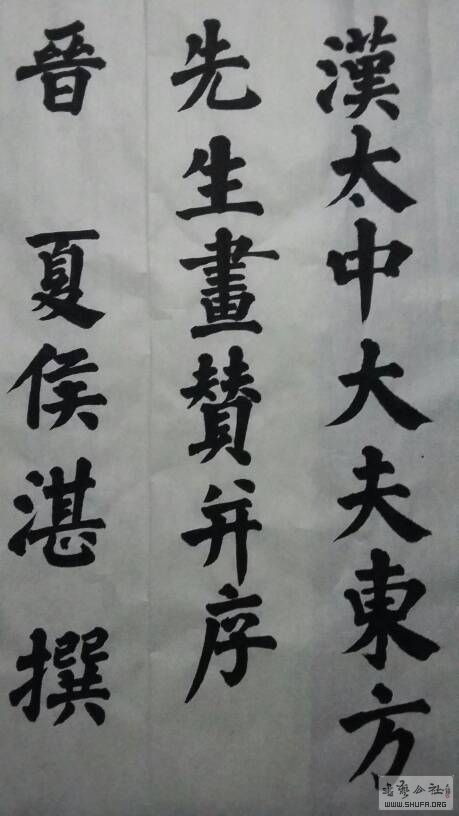 漢太中大夫東方
先生畫贊并序
晉 夏侯湛 撰
WWW.SHUFA.ORG